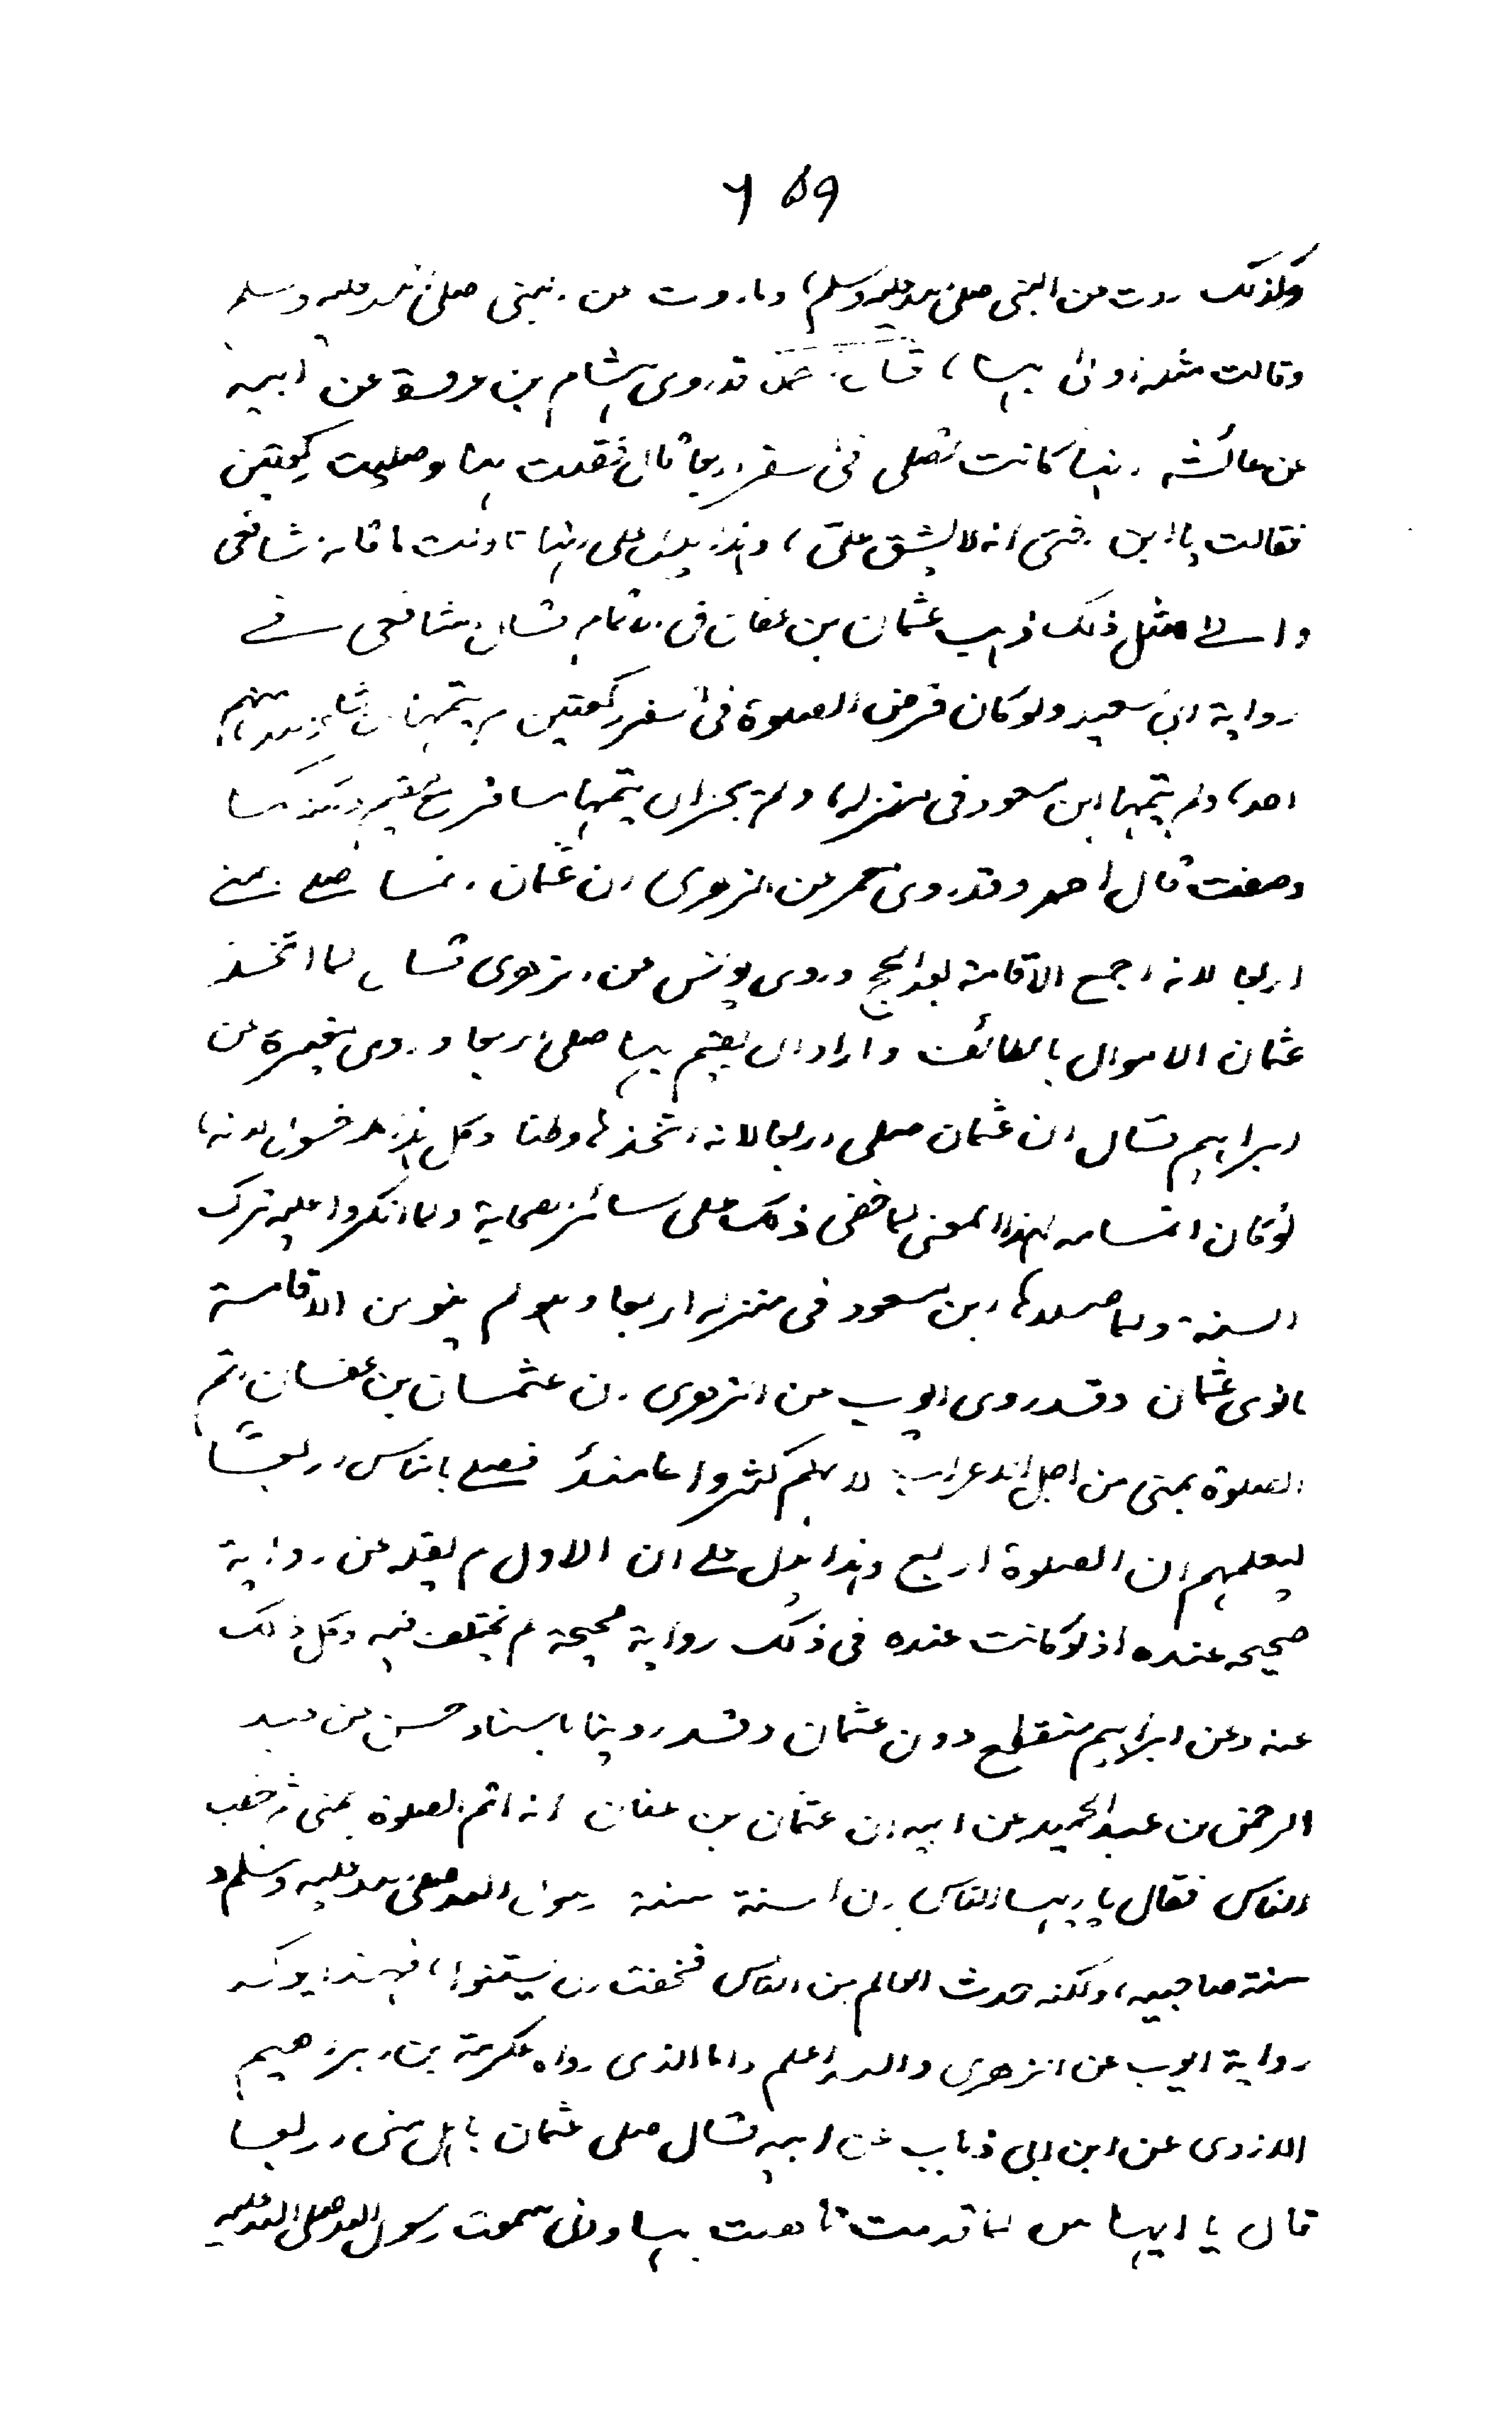 ۶۵۹
وكذلك روت عن النبي صلى الله عليه وسلم، وما روت عن النبي صلى الله عليه وسلم
وقالت مثله اولى بها، قال احمد قد روى هشام بن عروة عن ابيه
عن عائشه انها كانت تصلى فى السفر اربعا قال فقلت لها لو صليت ركعتين
فقالت يا ابن اختى انه لا يشق على، وهذا يدل على انها تاولت ما قاله الشافعى
والى مثل ذلك ذهب عثمان بن عفان فى الاتمام قال الشافعى فى
رواية ابى سعيد ولو كان فرض الصلوة فى السفر ركعتين لم يتمها ان شاء الله منهم
احد، ولم يتمها ابن مسعود فى منزله، ولم يجز ان يتمها مسافر مع مقيم وكذا كما
وصفت قال احمد وقد روى معمر عن الزهرى ان عثمان انما صلى بمنى
اربعا لانه اجمع الاقامة بعد الحج وروى يونس عن الزهرى قال لما اتخذ
عثمان الاموال بالطائف واراد ان يقيم بها صلى اربعا وروى مغيرة عن
ابراهيم قال ان عثمان صلى اربعا لانه اتخذها وطنا وكل هذا مدخول لانه،
لو كان اتمامه لهذا المعنى لما خفى ذلك على سائر الصحابة ولما انكروا عليه ترك
السنة ولما صلاها ابن مسعود فى منزله اربعا وهو لم ينو من الاقامة
ما نوى عثمان وقد روى ايوب عن الزهرى ان عثمان بن عفان اتم
الصلوة بمنى من اجل الاعراب لانهم كثروا عامئذ فصلى بالناس اربعا
ليعلمهم ان الصلوة اربع وهذا يدل على ان الاول لم يقله عن رواية
صحيحه عنده اذ لو كانت عنده فى ذلك رواية صحيحة لم يختلف فيه وكل ذلك
عنه وعن ابراهيم منقطع دون عثمان وقد روينا باسناد حسن عن عبد
الرحمن بن عبد الحميد عن ابيه ان عثمان بن عفان انه اتم الصلوة بمنى ثم خطب
الناس فقال يا ايها الناس ان السنة سنة رسول الله صلى الله عليه وسلم و
سنة صاحبيه، ولكنه حدث العام من الناس فخفت ان يستنوا، فهذا يؤكد
رواية ايوب عن الزهرى والله اعلم واما الذى رواه عكرمة بن ابراهيم
الازدى عن ابن ابى ذباب عن ابيه قال صلى عثمان باهل منى اربعا
قال يا ايها س لما قدمت تاهلت بها وانى سمعت رسول الله صلى الله عليه